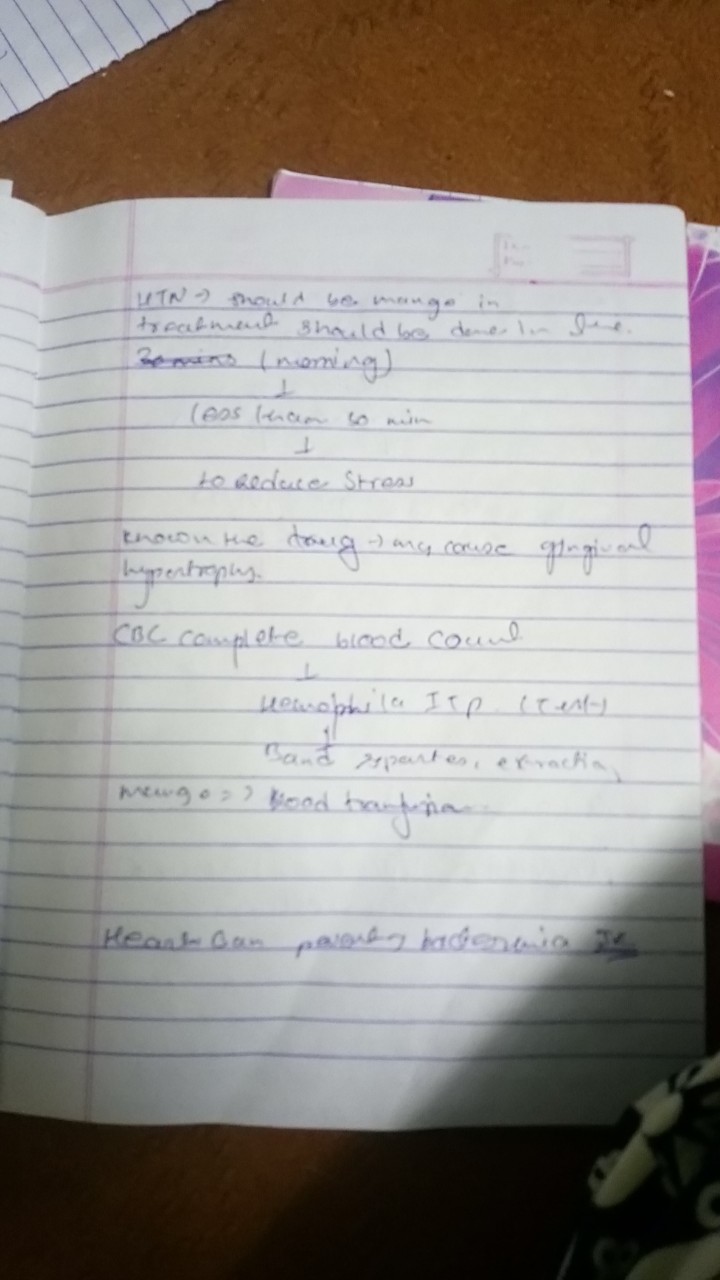 HTN → should be mange in
treatment should be done In
20 mins (morning)
↓
less than 30 min
↓
to Reduce Stress
known the drug → may cause gingival
hypertrophy.
CBC complete blood count
↓
Hemophila ITP. (Test)
↓
Band extraction,
mange => blood tranfusion
Heart patient → bacteremia IE